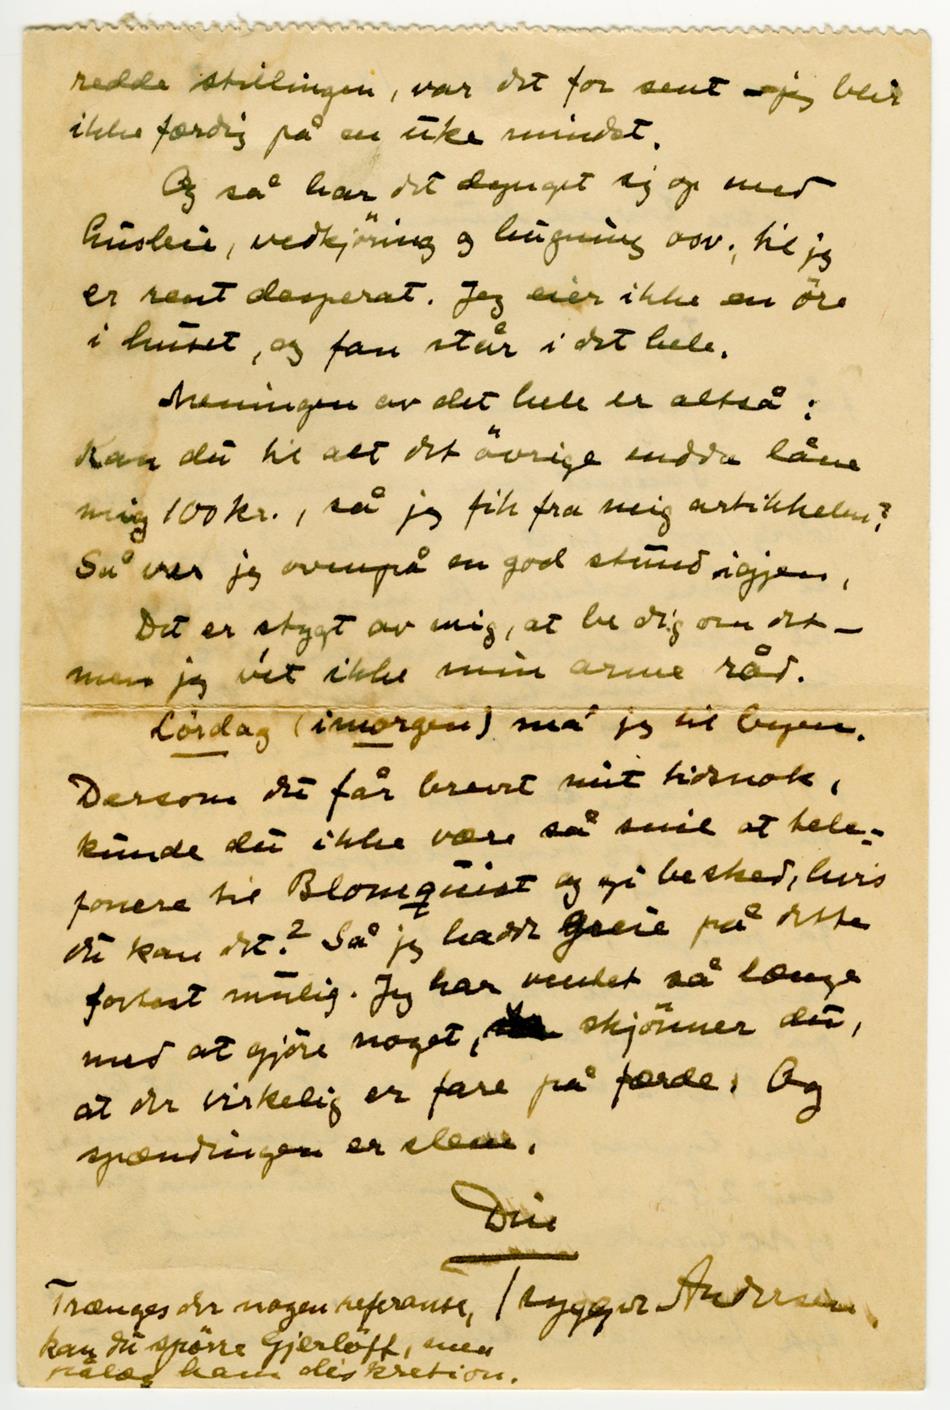 redde stillingen, var det for sent – jeg blir
ikke færdig på en uke mindst.
Og så har det dynget sig op med
husleie, vedkjöring og hugning osv., til jeg
er rent desperat. Jeg eier ikke en öre
i huset, og fan står i det hele.
Meningen av det hele er altså:
Kan du til alt det övrige endda låne
mig 100 kr., så jeg fik fra mig artikkelen?
Så var jeg ovenpå en god stund igjen.
Det er stygt av mig, at be dig om det –
men jeg vet ikke min arme råd.
Lördag (imorgen) må jeg til byen.
Dersom du får brevet mit tidsnok,
kunde du ikke være så snil at tele-
fonere til Blomquist og gi besked, hvis
du kan det? Så jeg hadde greie på dette
fortest mulig. Jeg har ventet så længe
med at gjöre noget, skjönner du,
at der virkelig er fare på færde. Og
spændingen er slem.
Din
Trygge Andersen.
Trænges der nogen referanse,
kan du spörre Gjerlöff, men
pålæg ham diskretion.